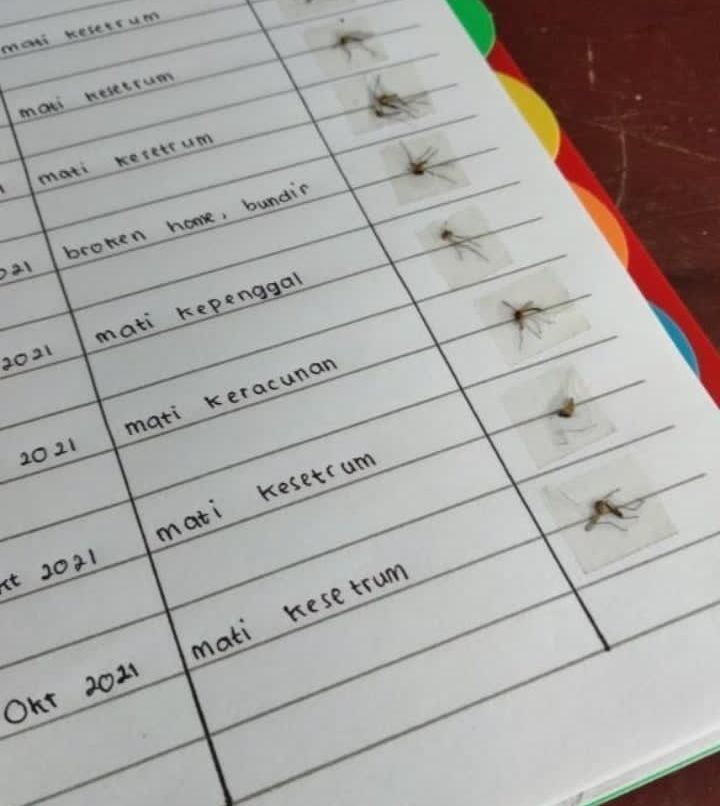 mati kesetrum
mati kesetrum
mati kesetrum
021 broken home, bundir
2021 mati kepenggal
2021 mati keracunan
kt 2021 mati kesetrum
Okt 2021 mati kesetrum